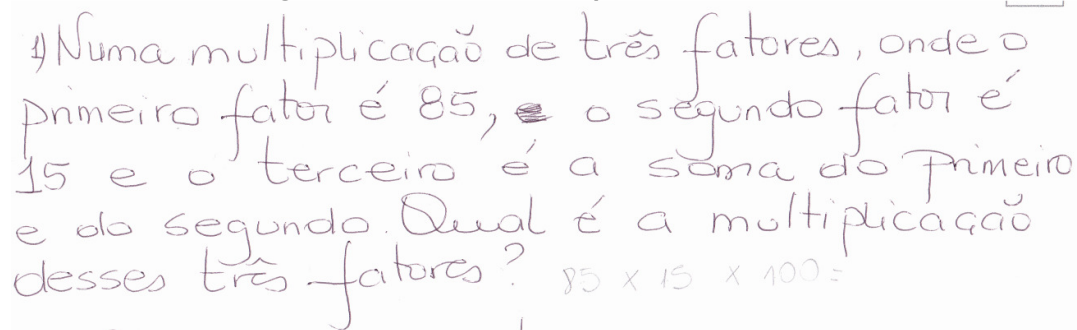 1) Numa multiplicação de três fatores, onde o
primeiro fator é 85, o segundo fator é
15 e o terceiro é a soma do primeiro
e do segundo. Qual é a multiplicação
desses três fatores? 85 x 15 x 100=